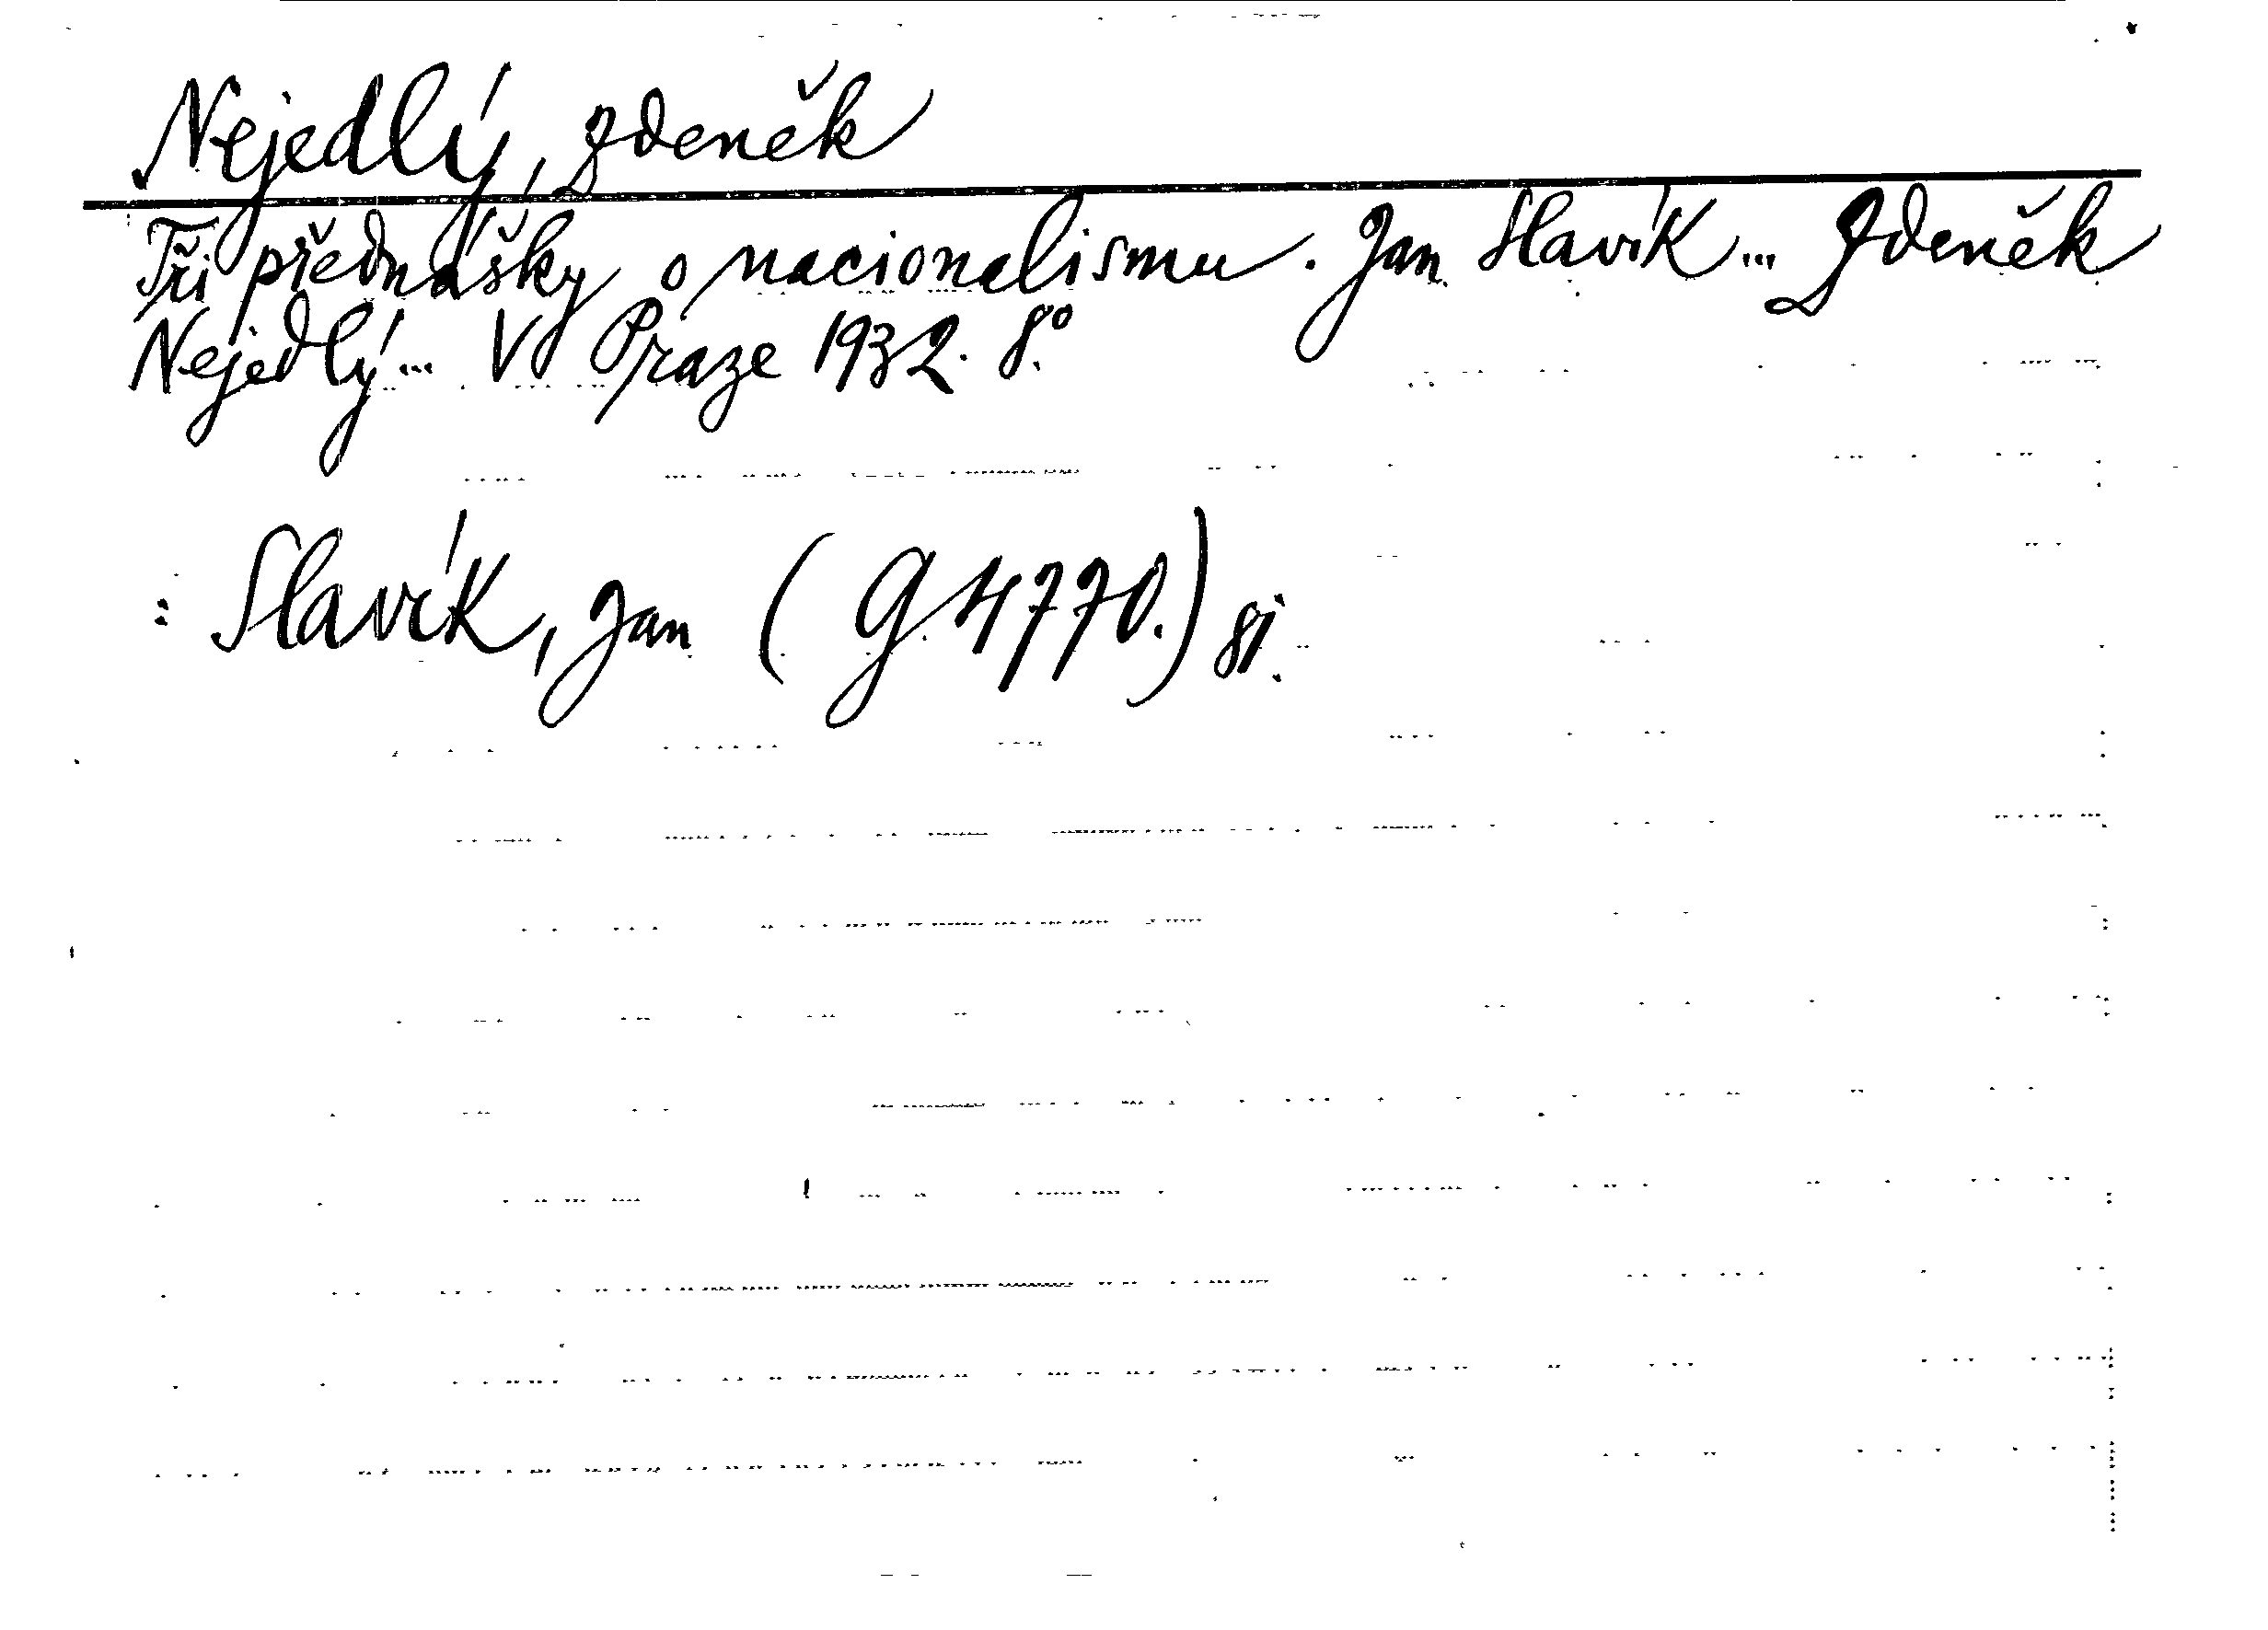 Nejedlý, Zdeněk
Tři přednášky o nacionalismu. Jan Slavík... Zdeněk
Nejedlý... V Praze 1932. 8°.
: Slavík, Jan (G. 4770.)